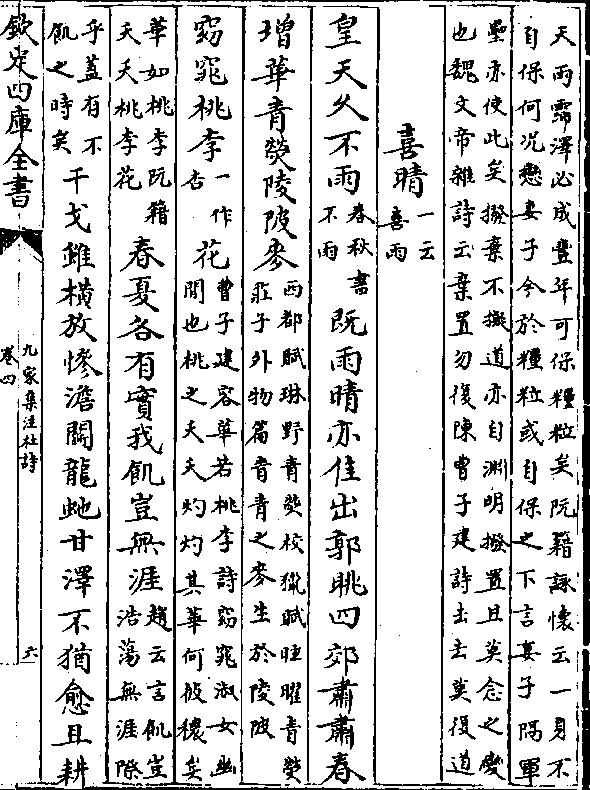 天雨霈澤必成豐年可保糧粒矣阮籍詠懷云一身不
自保何況戀妻子今於糧粒或自保之下言妻子隔軍
壘亦使此矣撥棄不擬道亦自淵明撥置且莫念之變
也魏文帝雜詩云棄置勿復陳曹子建詩去去莫復道
喜晴一云
喜雨
皇天久不雨春秋書
不雨既雨晴亦佳出郭眺四郊蕭蕭春
增華青熒陵陂麥西都賦琳野青熒校獵賦眭曜青熒
莊子外物篇青青之麥生於陵陂
窈窕桃李一作
杏花曹子建容華若桃李詩窈窕淑女幽
閒也桃之夭夭灼灼其華何彼穠矣
華如桃李阮籍
夭夭桃李花春夏各有實我飢豈無涯趙云言飢豈
浩蕩無涯際
乎蓋有不
飢之時矣干戈雖橫放慘澹鬭龍虵甘澤不猶愈且耕
欽定四庫全書
九家集注杜詩
卷四
六